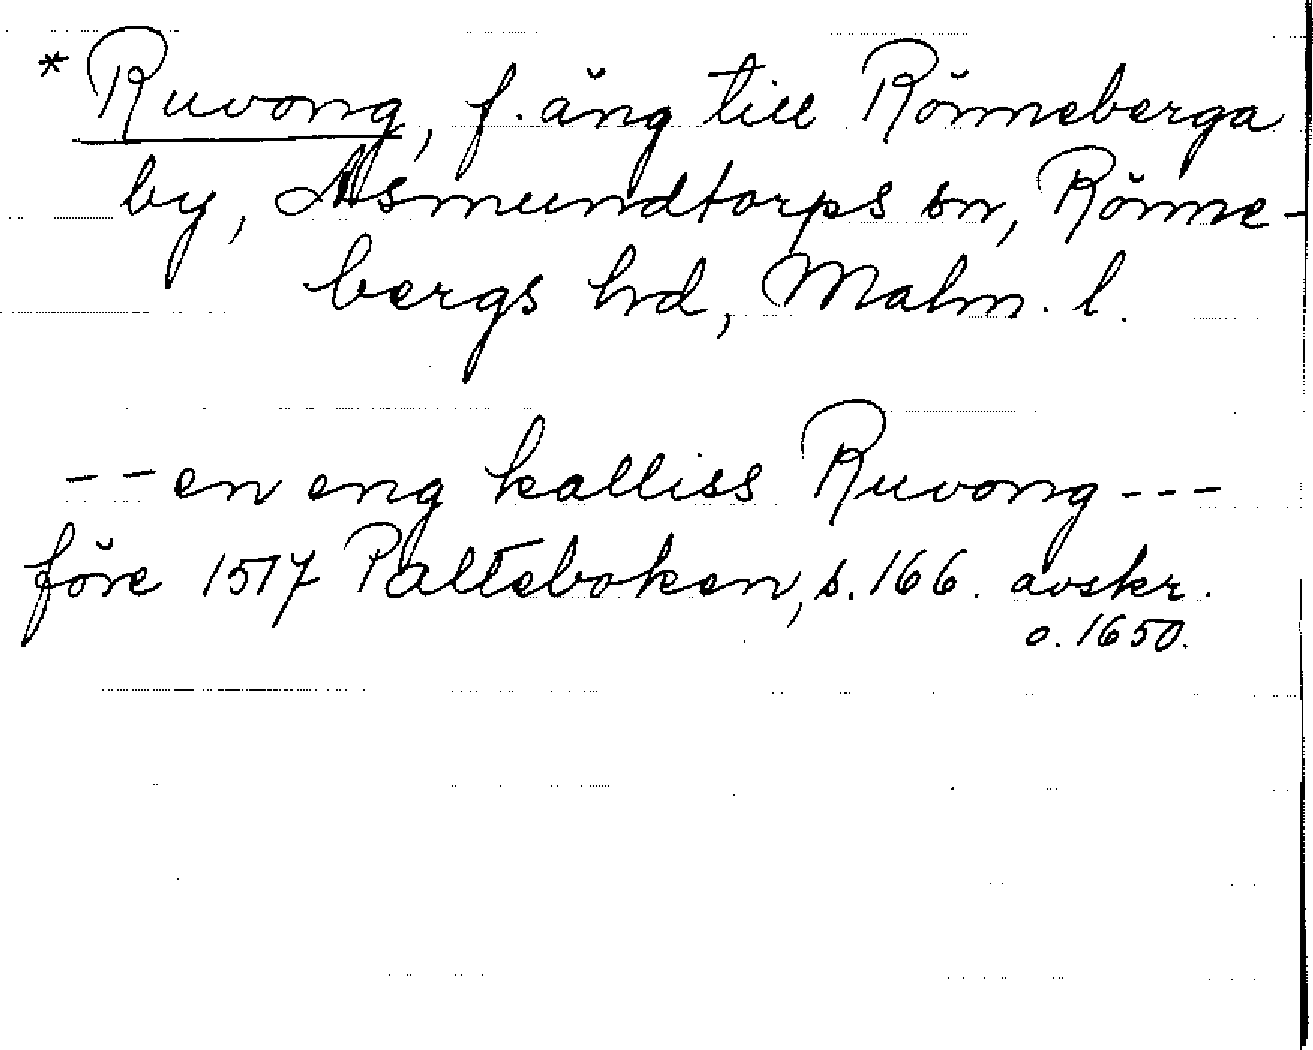 * Ruvong, f. äng till Rönneberga
by, Asmundtorps sn, Rönne-
bergs hd, Malm. l.
-- en eng kalliss Ruvong ---
före 1517 Palteboken, s. 166. avskr.
o. 1650.